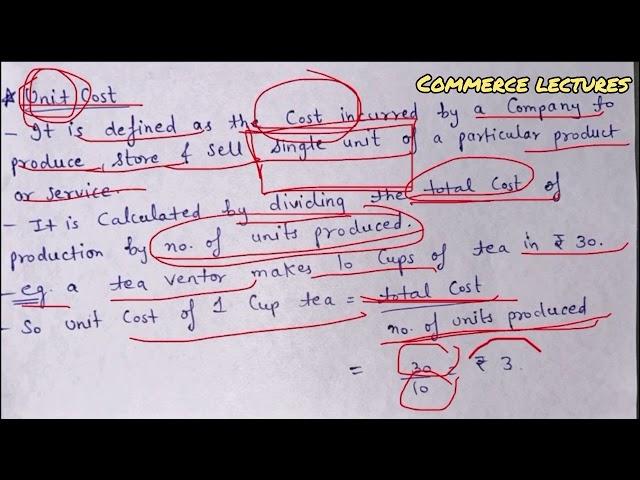 COMMERCE LECTURES
* Unit Cost
- It is defined as the Cost incurred by a Company to
produce, store & sell single unit of a particular product
or service.
- It is Calculated by dividing the total Cost of
production by no. of units produced.
- eg. a tea ventor makes 10 Cups of tea in ₹ 30.
- So unit Cost of 1 Cup tea = total Cost
no. of units produced
= 30 = ₹ 3.
10